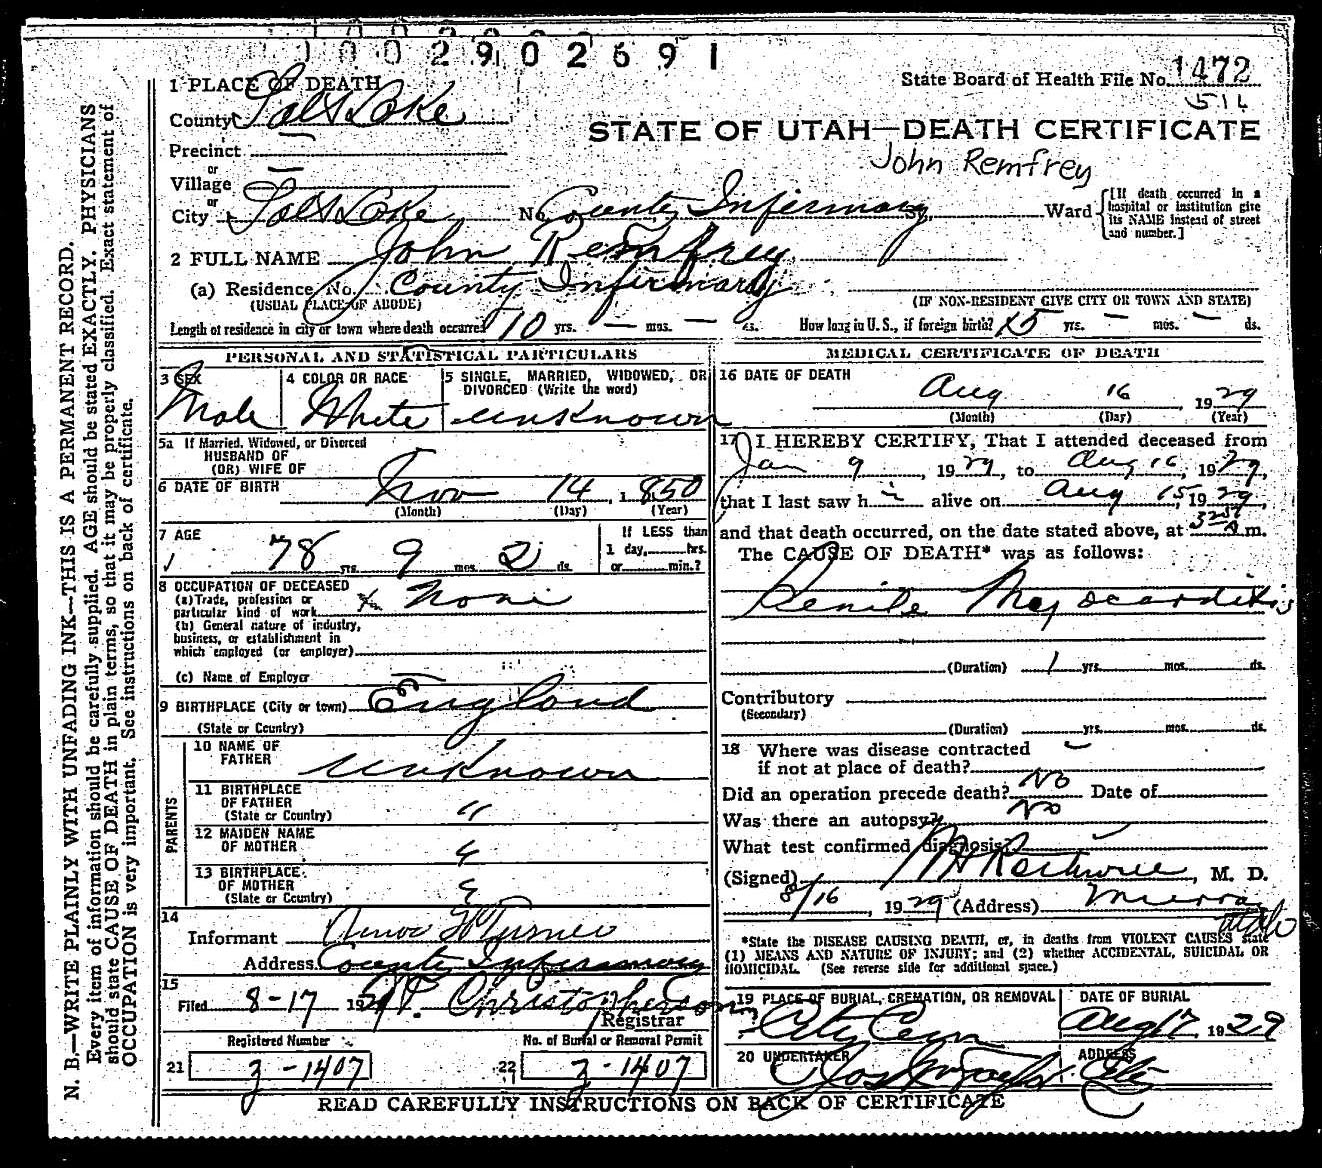 1002902691
State Board of Health File No. 1472
511
1 PLACE OF DEATH
County Salt Lake
STATE OF UTAH—DEATH CERTIFICATE
Precinct —
John Remfrey
or
Village —
or
City Salt Lake No. County Infirmary St. Ward [If death occurred in a hospital or institution give its NAME instead of street and number.]
2 FULL NAME John Remfrey
(a) Residence No. County Infirmary
(USUAL PLACE OF ABODE) (IF NON-RESIDENT GIVE CITY OR TOWN AND STATE)
Length of residence in city or town where death occurred 10 yrs. — mos. — ds. How long in U.S., if foreign birth? yrs. — mos. — ds.
PERSONAL AND STATISTICAL PARTICULARS
3 SEX Male
4 COLOR OR RACE White
5 SINGLE, MARRIED, WIDOWED, OR DIVORCED (Write the word) unknown
5a If Married, Widowed, or Divorced
HUSBAND OF
(OR) WIFE OF
6 DATE OF BIRTH Nov 14, 1850
(Month) (Day) (Year)
7 AGE 78 yrs. 9 mos. 2 ds.
If LESS than
1 day, hrs.
or min.?
8 OCCUPATION OF DECEASED
(a) Trade, profession or
particular kind of work None
(b) General nature of industry,
business, or establishment in
which employed (or employer)
(c) Name of Employer —
9 BIRTHPLACE (City or town) England
(State or Country)
PARENTS
10 NAME OF FATHER unknown
11 BIRTHPLACE OF FATHER "
(State or Country)
12 MAIDEN NAME OF MOTHER "
13 BIRTHPLACE OF MOTHER "
(State or Country)
14
Informant
Address County Infirmary
15
Filed 8-17 1929 Christopherson
Registrar
Registered Number No. of Burial or Removal Permit
21 3-1407 22 3-1407
MEDICAL CERTIFICATE OF DEATH
16 DATE OF DEATH
Aug 16, 1929
(Month) (Day) (Year)
17 I HEREBY CERTIFY, That I attended deceased from
Jan 9, 1929, to Aug 16, 1929,
that I last saw h i alive on Aug 15, 1929,
and that death occurred, on the date stated above, at m.
The CAUSE OF DEATH* was as follows:
Senile Myocarditis
(Duration) 1 yrs. mos. ds.
Contributory
(Secondary)
(Duration) yrs. mos. ds.
18 Where was disease contracted
if not at place of death?
Did an operation precede death? No Date of
Was there an autopsy? No
What test confirmed diagnosis?
(Signed) M. D.
8/16, 1929 (Address) Murray
Utah
*State the DISEASE CAUSING DEATH, or, in deaths from VIOLENT CAUSES state
(1) MEANS AND NATURE OF INJURY; and (2) whether ACCIDENTAL, SUICIDAL OR
HOMICIDAL. (See reverse side for additional space.)
19 PLACE OF BURIAL, CREMATION, OR REMOVAL City Cem
DATE OF BURIAL Aug 17 1929
20 UNDERTAKER Jos Wm Taylor
ADDRESS City
READ CAREFULLY INSTRUCTIONS ON BACK OF CERTIFICATE
N. B.—WRITE PLAINLY WITH UNFADING INK—THIS IS A PERMANENT RECORD.
Every item of information should be carefully supplied. AGE should be stated EXACTLY. PHYSICIANS
should state CAUSE OF DEATH in plain terms, so that it may be properly classified. Exact statement of
OCCUPATION is very important. See instructions on back of certificate.